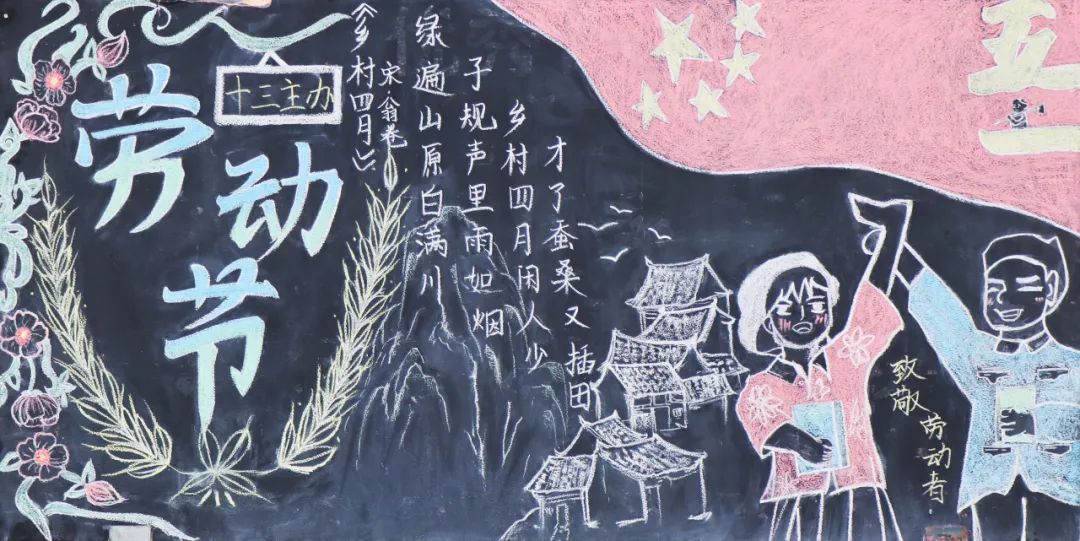 劳动节
十三主办
《乡村四月》
宋·翁卷
绿遍山原白满川
子规声里雨如烟
乡村四月闲人少
才了蚕桑又插田
五一
致敬
劳动者